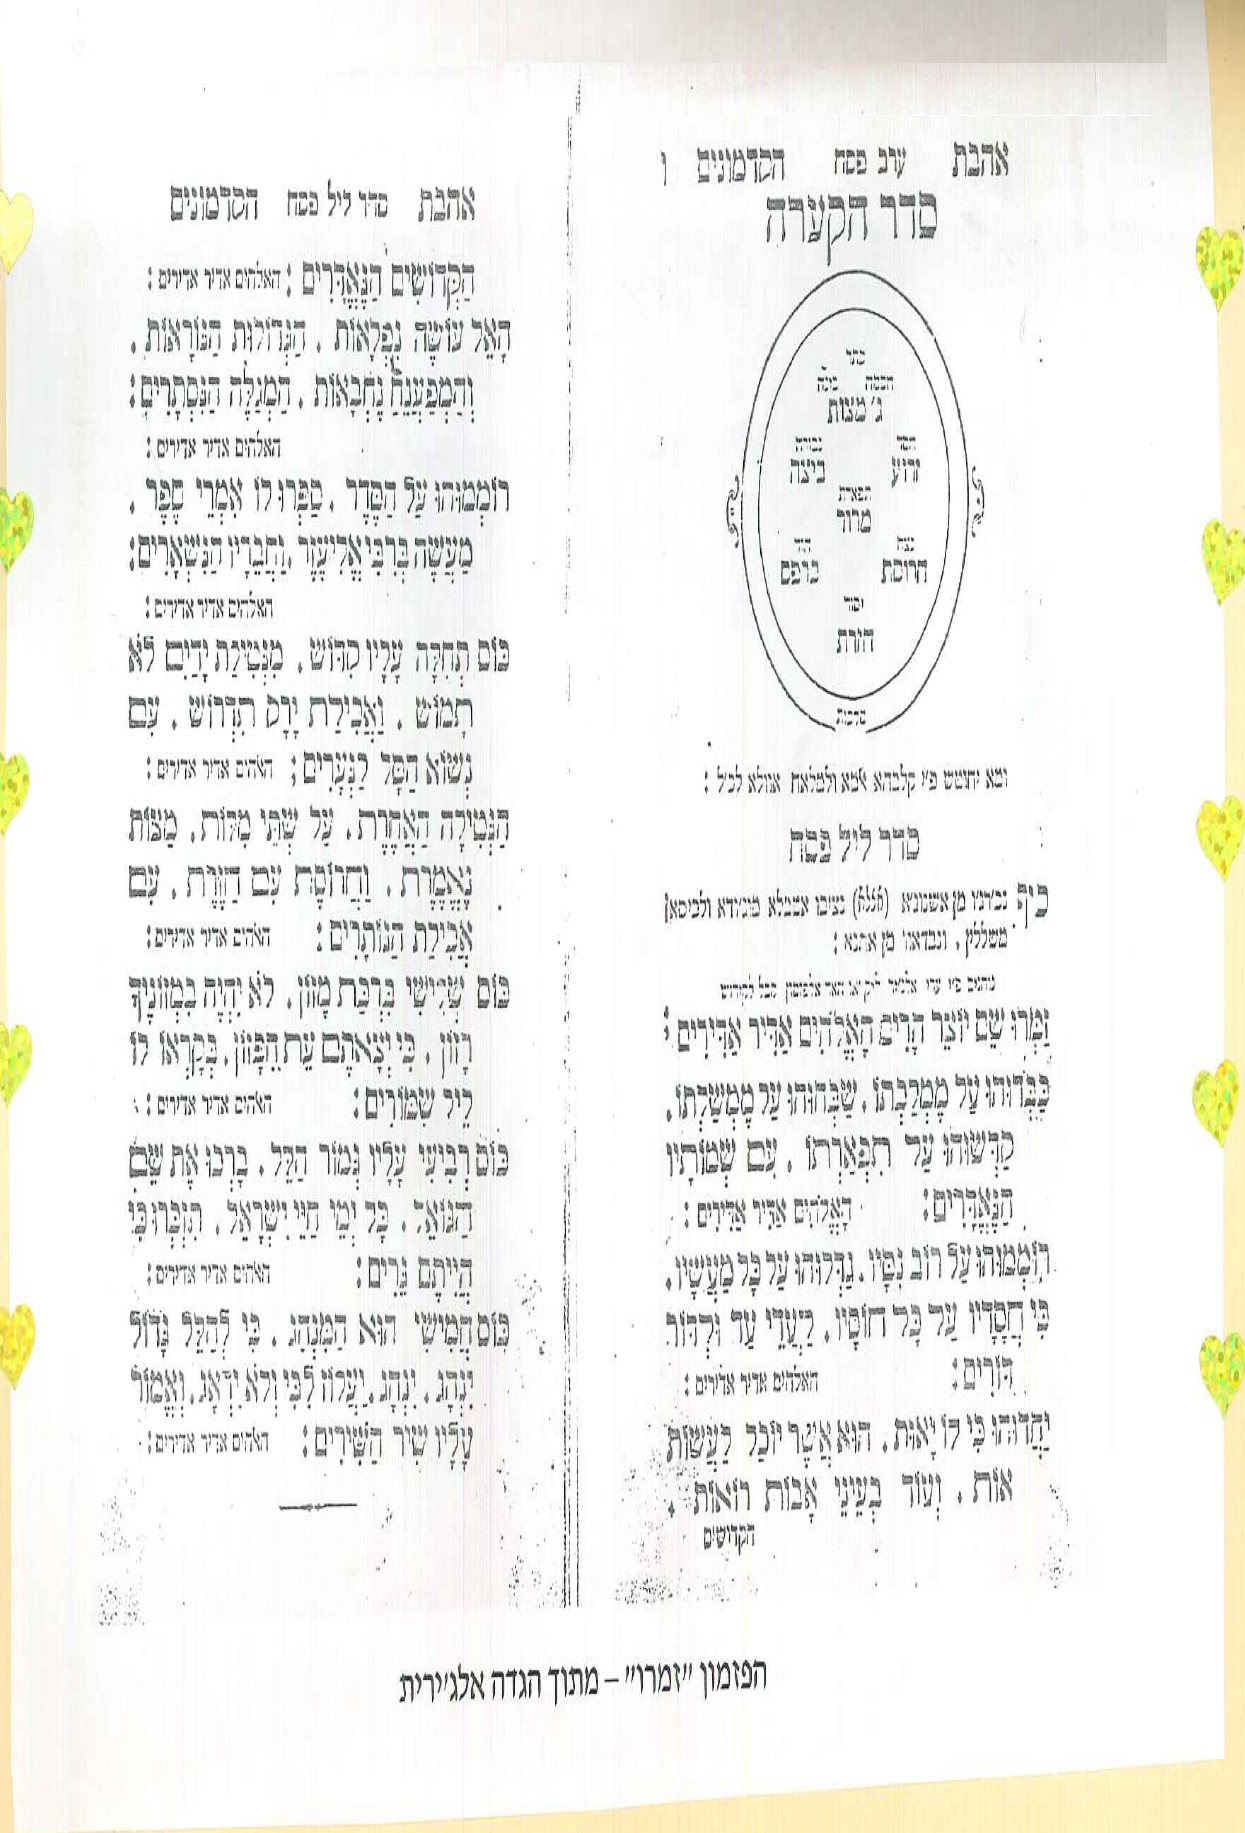 אהבת ערב פסח הקדמונים ו
סדר הקערה
כתר
חכמה בינה
ג׳ מצות
חסד גבורה
זרוע ביצה
תפארת
מרור
נצח הוד
חרוסת כרפס
יסוד
חזרת
מלכות
סדר ליל פסח
זַמְּרוּ שֵׁם יוֹצֵר הָרִים הָאֱלֹהִים אַדִּיר אַדִּירִים :
כַּבְּדוּהוּ עַל מַמְלַכְתּוֹ . שַׁבְּחוּהוּ עַל מֶמְשַׁלְתּוֹ .
קַדְּשׁוּהוּ עַל תִּפְאַרְתּוֹ . עִם שְׁמוֹתָיו
הַנֶּאֱדָּרִים : הָאֱלֹהִים אַדִּיר אַדִּירִים :
רוֹמְמוּהוּ עַל רוֹב נִסָּיו . גַּדְּלוּהוּ עַל כָּל מַעֲשָׂיו .
כִּי חֲסָדָיו עַל כָּל חוֹסָיו . לַעֲדֵי עַד וּלְדוֹר
דּוֹרִים : האלהים אדיר אדירים :
יַחֲדוּהוּ כִּי לוֹ יָאוּת . הוּא אֲשֶׁר יוּכַל לַעֲשׂוֹת
אוֹת . וְעוֹד בְּעֵינֵי אָבוֹת רוֹאוֹת .
הקדושים
אהבת סדר ליל פסח הקדמונים
הַקְּדוֹשִׁים הַנֶּאֱדָּרִים : האלהים אדיר אדירים :
הָאֵל עוֹשֶׂה נִפְלָאוֹת . הַגְּדוֹלוֹת הַנּוֹרָאוֹת .
וְהַמְפַעְנֵחַ נֶחְבָּאוֹת . הַמְגַלֶּה הַנִּסְתָּרִים :
האלהים אדיר אדירים :
רוֹמְמוּהוּ עַל הַסֵּדֶר . סַפְּרוּ לוֹ אִמְרֵי סֵפֶר .
מַעֲשֶׂה בְּרִבִּי אֱלִיעֶזֶר . וַחֲבֵרָיו הַנִּשְׁאָרִים :
האלהים אדיר אדירים :
כּוֹס תְּחִלָּה עָלָיו קִדּוּשׁ . מִנְּטִילַת יָדַיִם לֹא
תָמוּשׁ . וַאֲכִילַת יָרָק תִּדְרוֹשׁ . עִם
נְשׂוֹא הַסַּל לַנְּעָרִים : האהים אדיר אדירים :
הַנְּטִילָה הָאַחֶרֶת . עַל שְׁתֵּי מִלּוֹת . מַצּוֹת
נֶאֱמֶרֶת . וַחֲרוֹסֶת עִם חַזֶּרֶת . עִם
אֲכִילַת הַנּוֹתָרִים : האהים אדיר אדירים :
כּוֹס שְׁלִישִׁי בִּרְכַּת מָזוֹן . לֹא יִהְיֶה בִּמְזוֹנְךָ
רָזוֹן . כִּי יְצָאתֶם עֵת חִפָּזוֹן . בְּקָרְאוֹ לוֹ
לֵיל שִׁמּוּרִים : האהים אדיר אדירים :
כּוֹס רְבִיעִי עָלָיו גְּמוֹר הַלֵּל . בָּרְכוּ אֶת שֵׁם
הַגּוֹאֵל . כָּל יְמֵי חַיֵּי יִשְׂרָאֵל . תִּזְכְּרוּ כִּי
הֱיִיתֶם גֵּרִים : האהים אדיר אדירים :
כּוֹס חֲמִישִׁי הוּא הַמִּנְהָג . כִּי לְהַלֵּל גָּדוֹל
יִנְהָג . יִנְהָג . יַעֲלוֹז לִבִּי וְלֹא יִדְאָג . וְאֶמוֹר
עָלָיו שִׁיר הַשִּׁירִים : האהים אדיר אדירים :
הפזמון "זמרו" – מתוך הגדה אלג'ירית